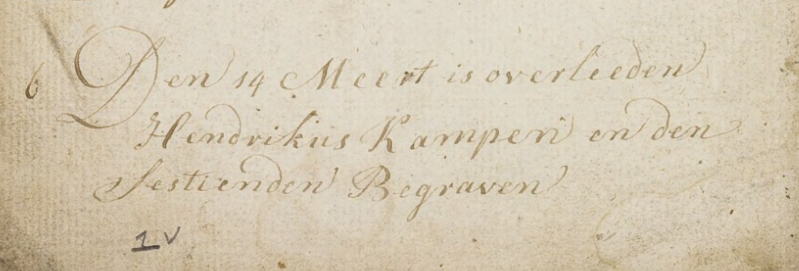 6 Den 14 Meert is overleeden
Hendrikus Kampen en den
sestienden Begraven
1 v